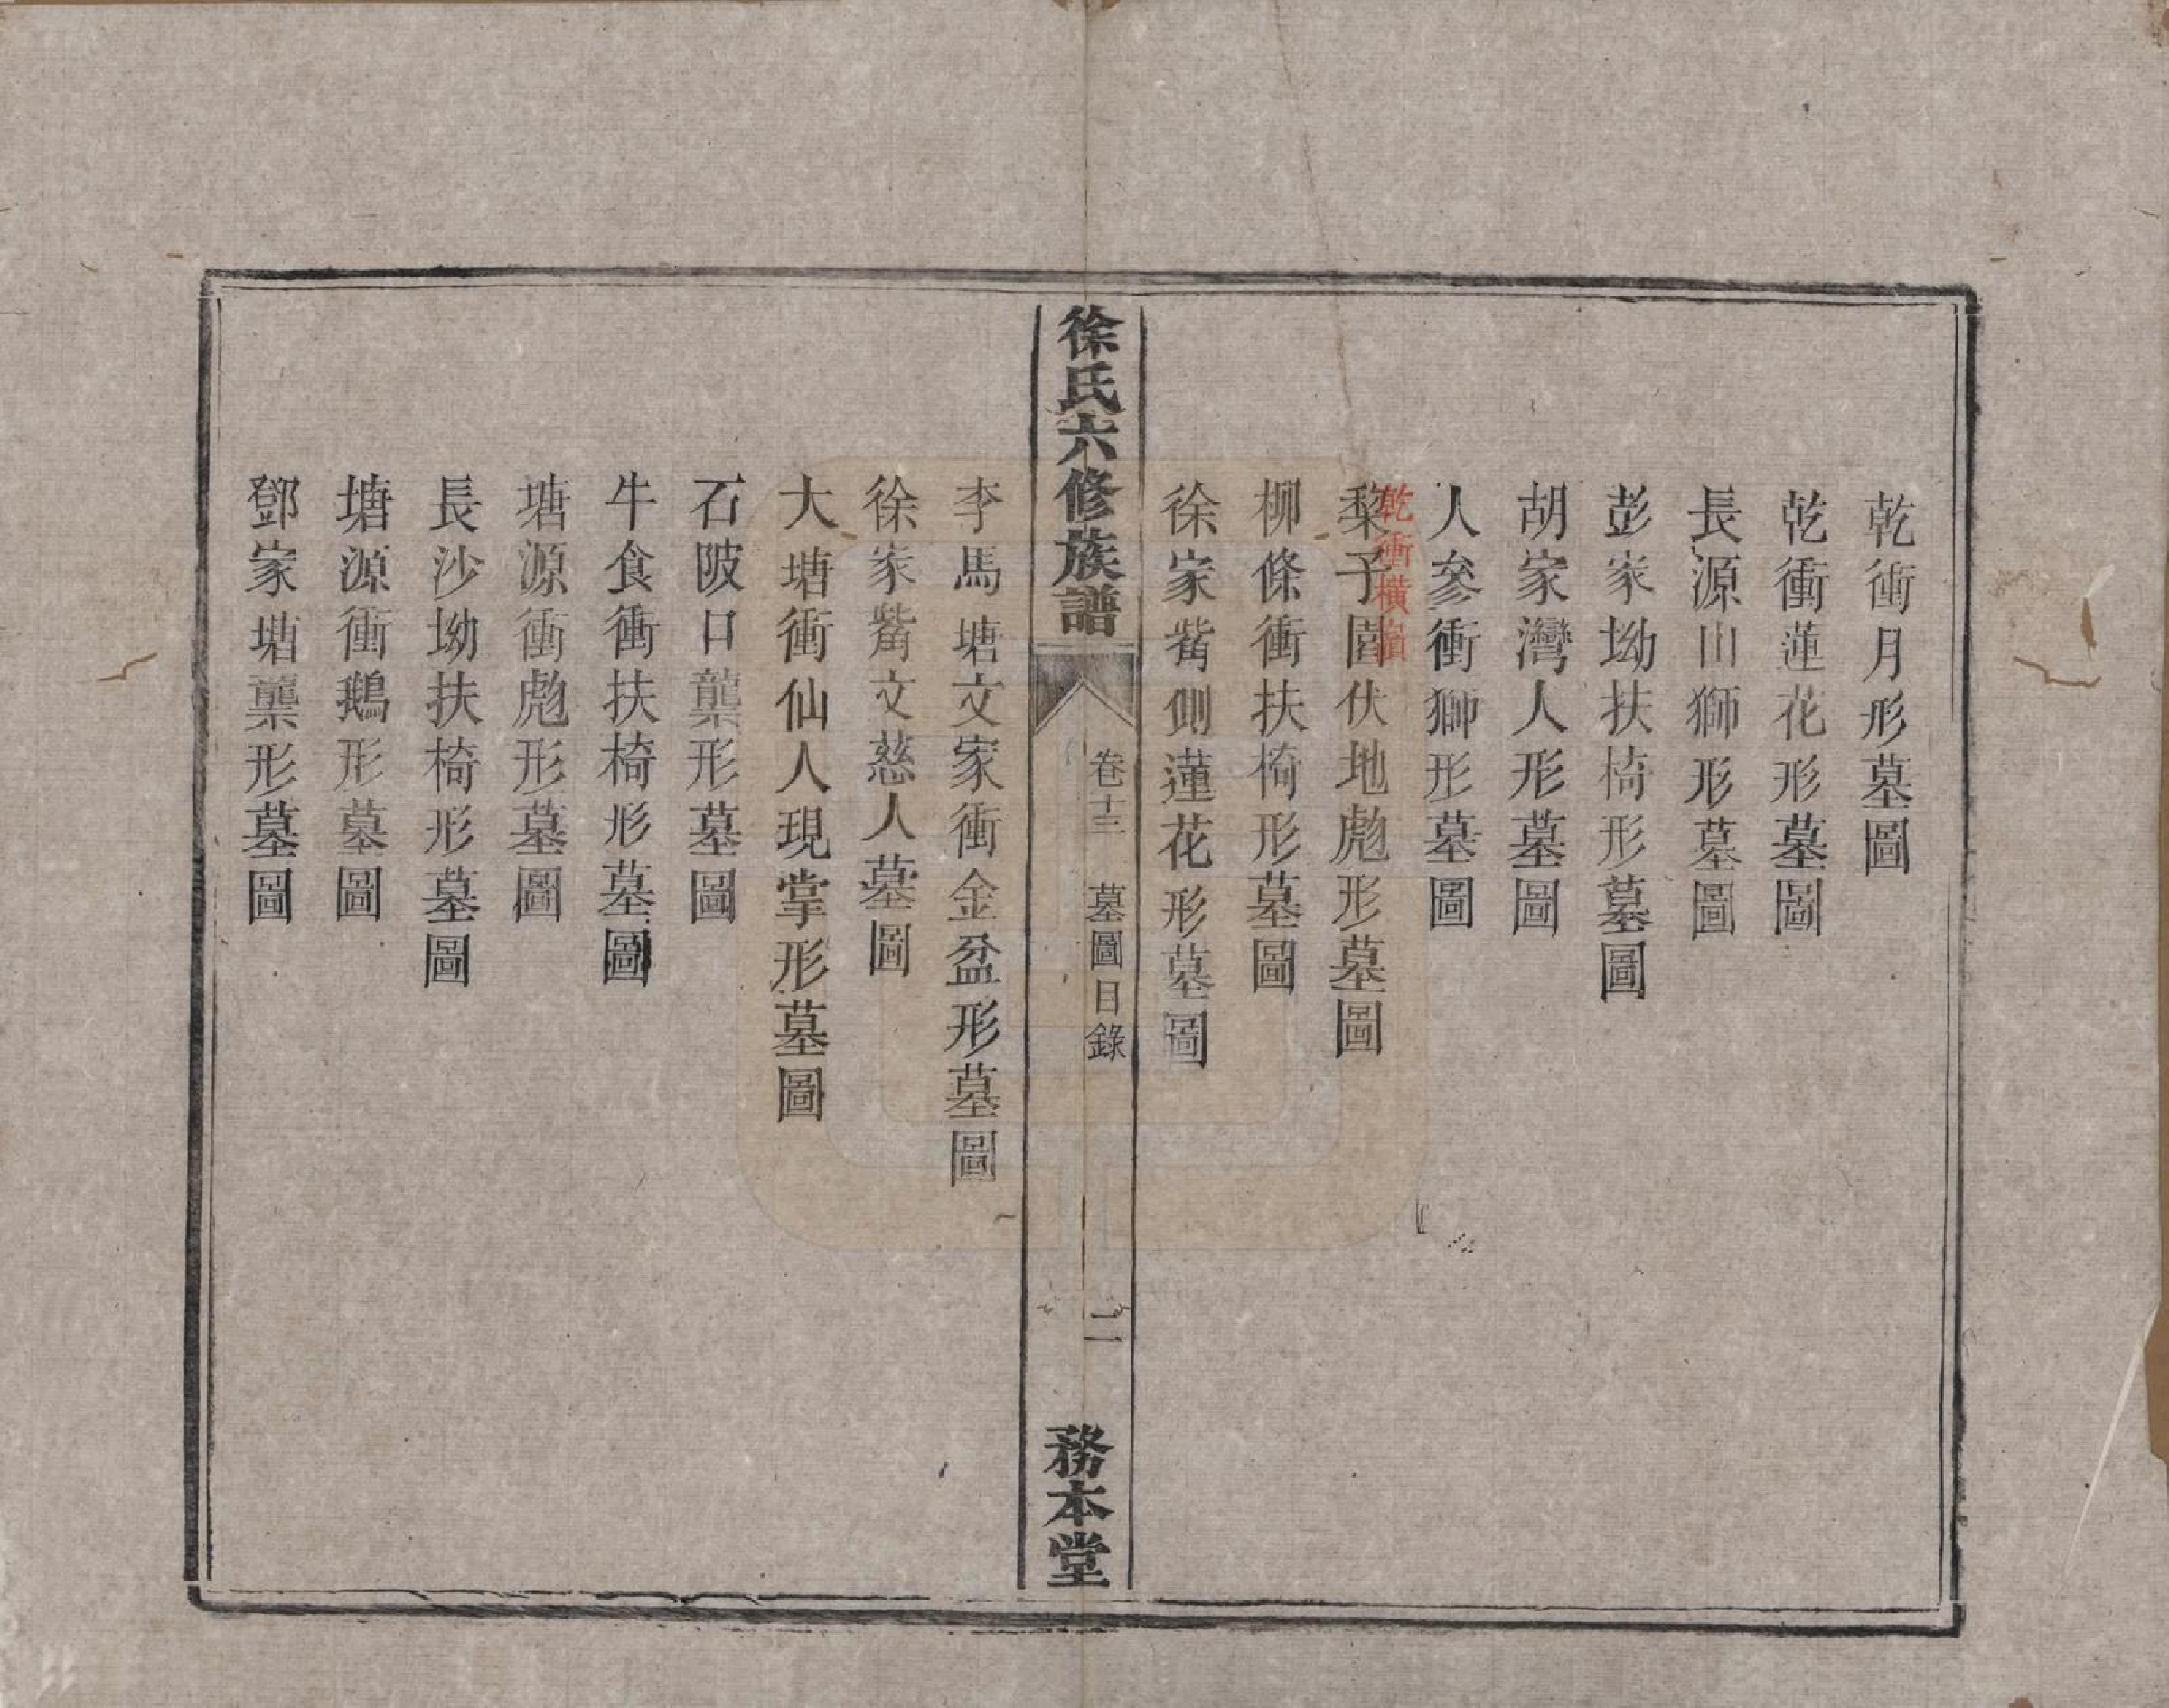 乾衝月形墓圖
乾衝蓮花形墓圖
長源山獅形墓圖
彭家坳扶椅形墓圖
胡家灣人形墓圖
人參衝獅形墓圖
乾衝橫嶺
梨子園伏地彪形墓圖
柳條衝扶椅形墓圖
徐家觜側蓮花形墓圖
徐氏六修族譜
卷十三
墓圖目錄
二
務本堂
李馬塘文家衝金盆形墓圖
徐家觜文慈人墓圖
大塘衝仙人現掌形墓圖
石陂口龍形墓圖
牛食衝扶椅形墓圖
塘源衝彪形墓圖
長沙坳扶椅形墓圖
塘源衝鵝形墓圖
鄧家塘形墓圖